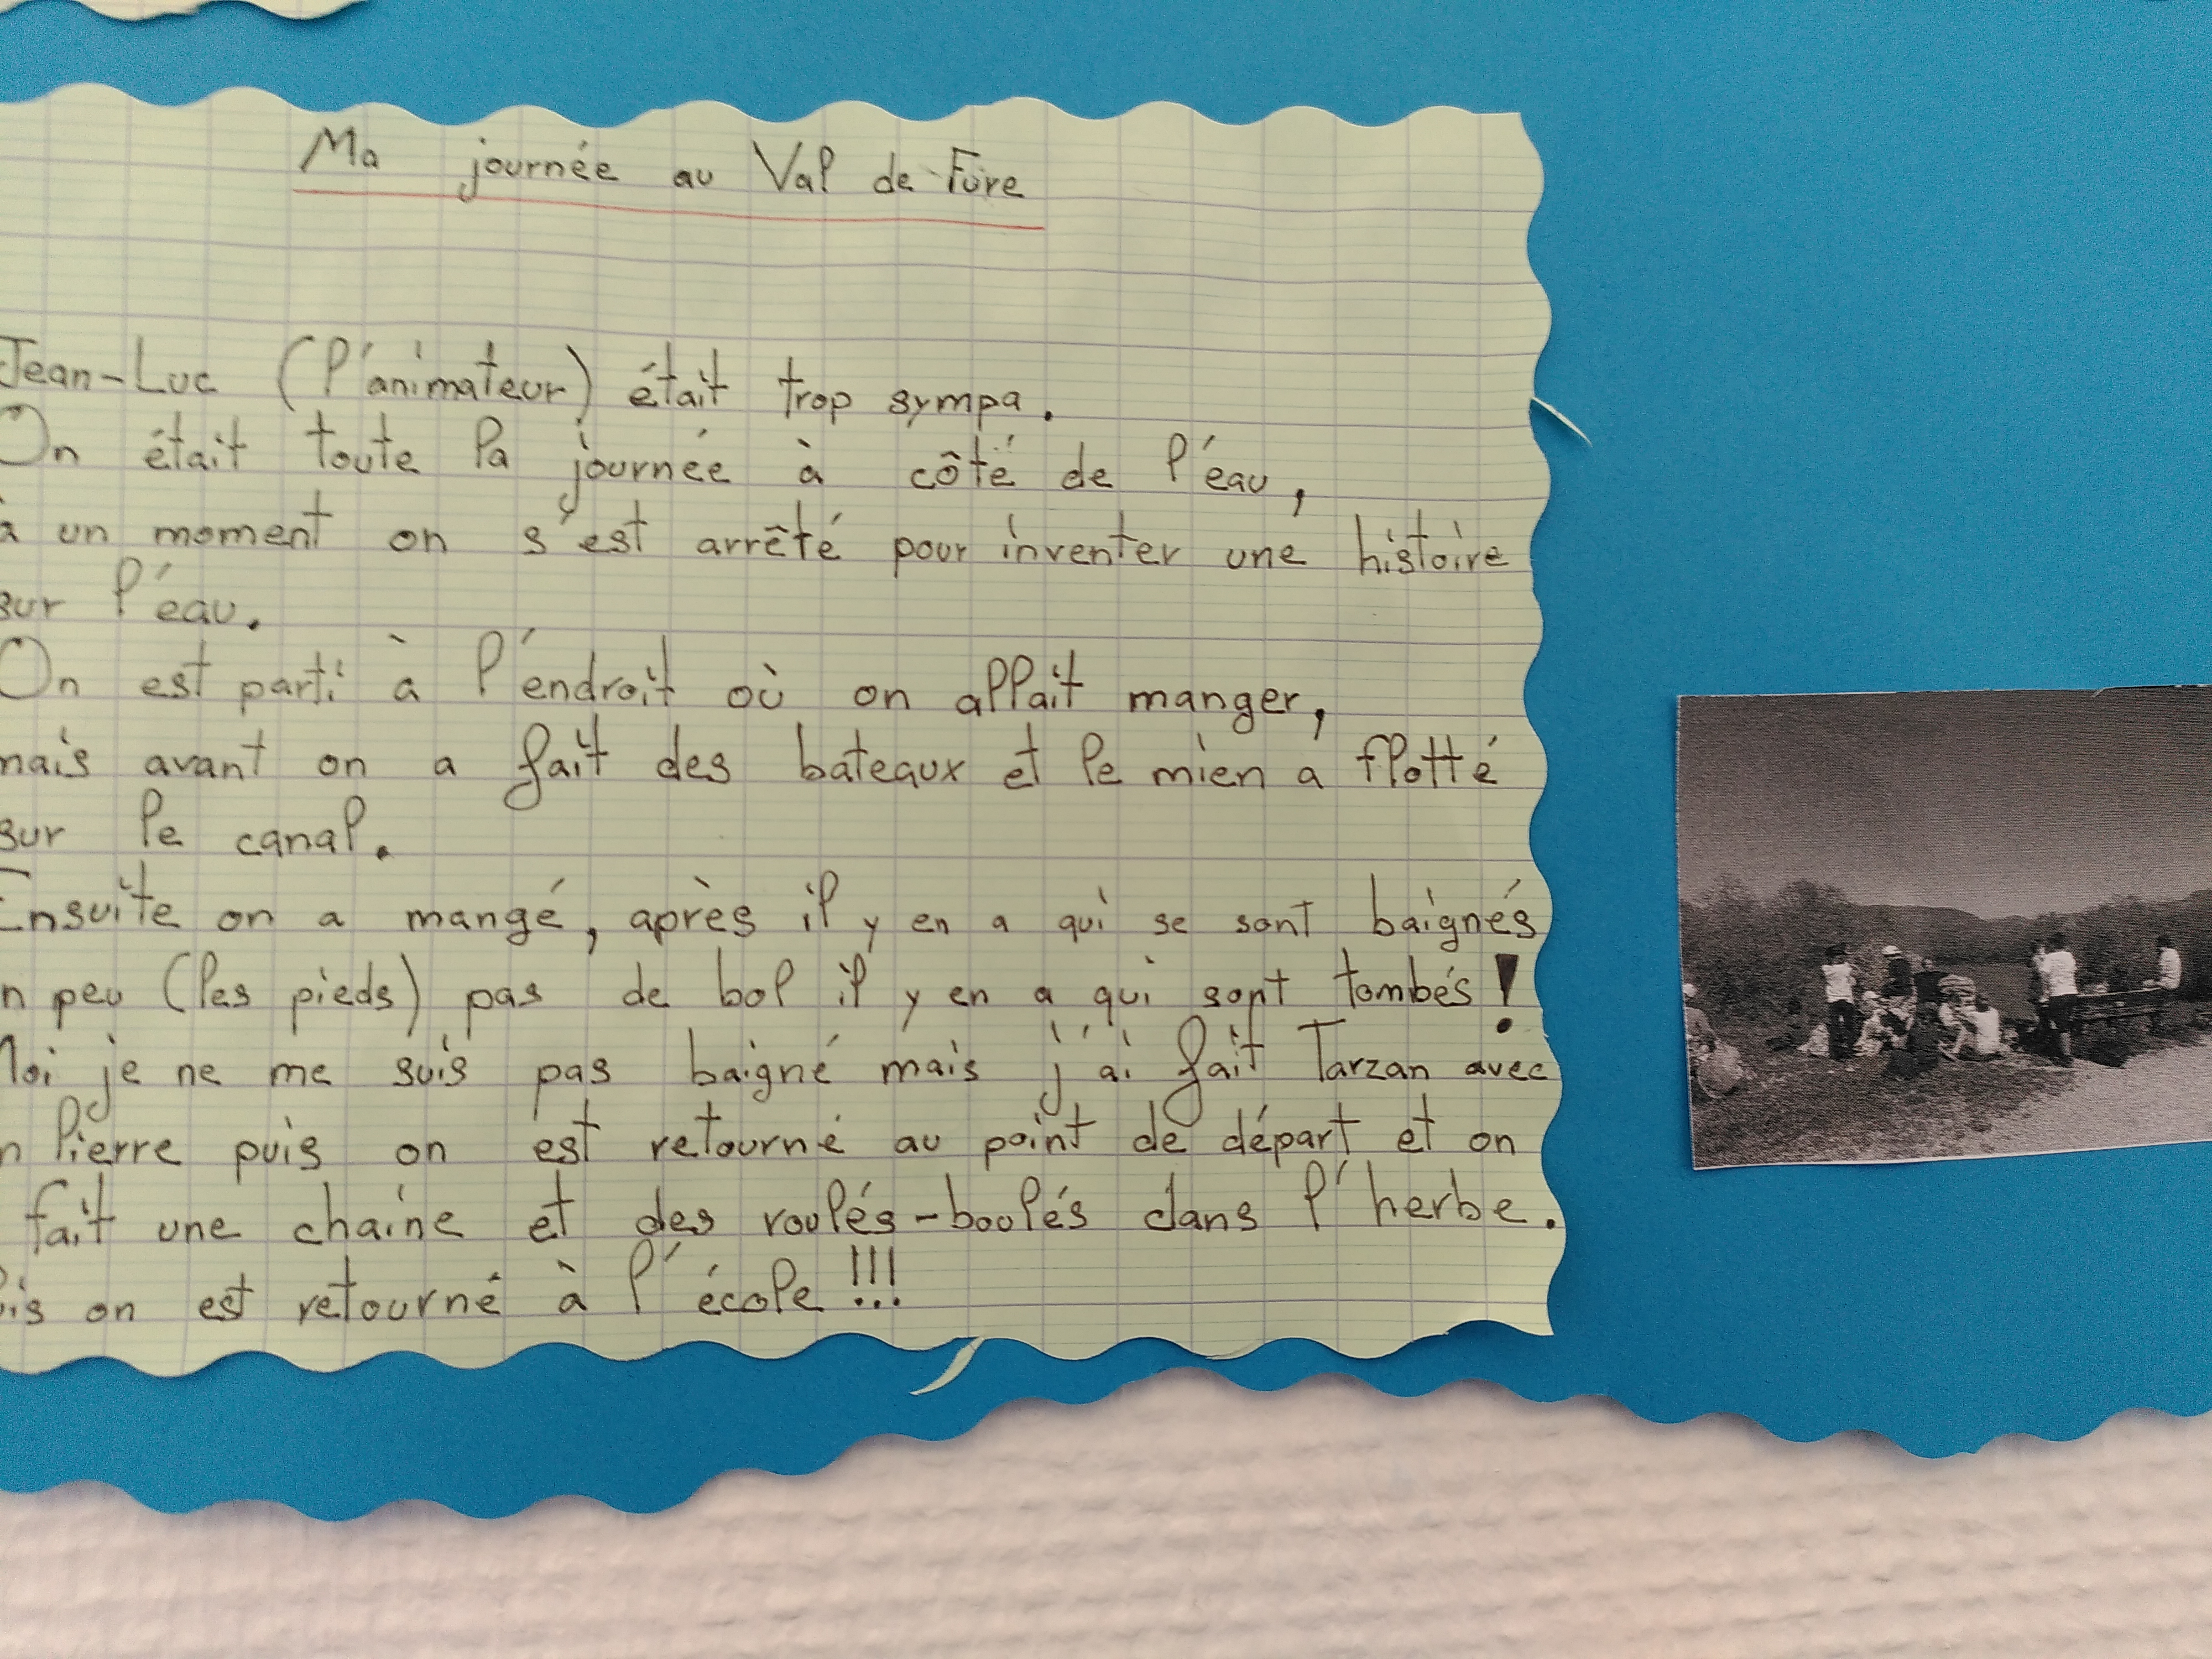 Ma journée au Val de Fure
Jean-Luc (l'animateur) était trop sympa.
On était toute la journée à côté de l'eau,
à un moment on s'est arrêté pour inventer une histoire
sur l'eau.
On est parti à l'endroit où on allait manger,
mais avant on a fait des bateaux et le mien a flotté
sur le canal.
Ensuite on a mangé, après il y en a qui se sont baignés
n peu (les pieds) pas de bol il y en a qui sont tombés !
Moi je ne me suis pas baigné mais j'ai fait Tarzan avec
n Pierre puis on est retourné au point de départ et on
fait une chaine et des roulés-boulés dans l'herbe.
is on est retourné à l'école !!!